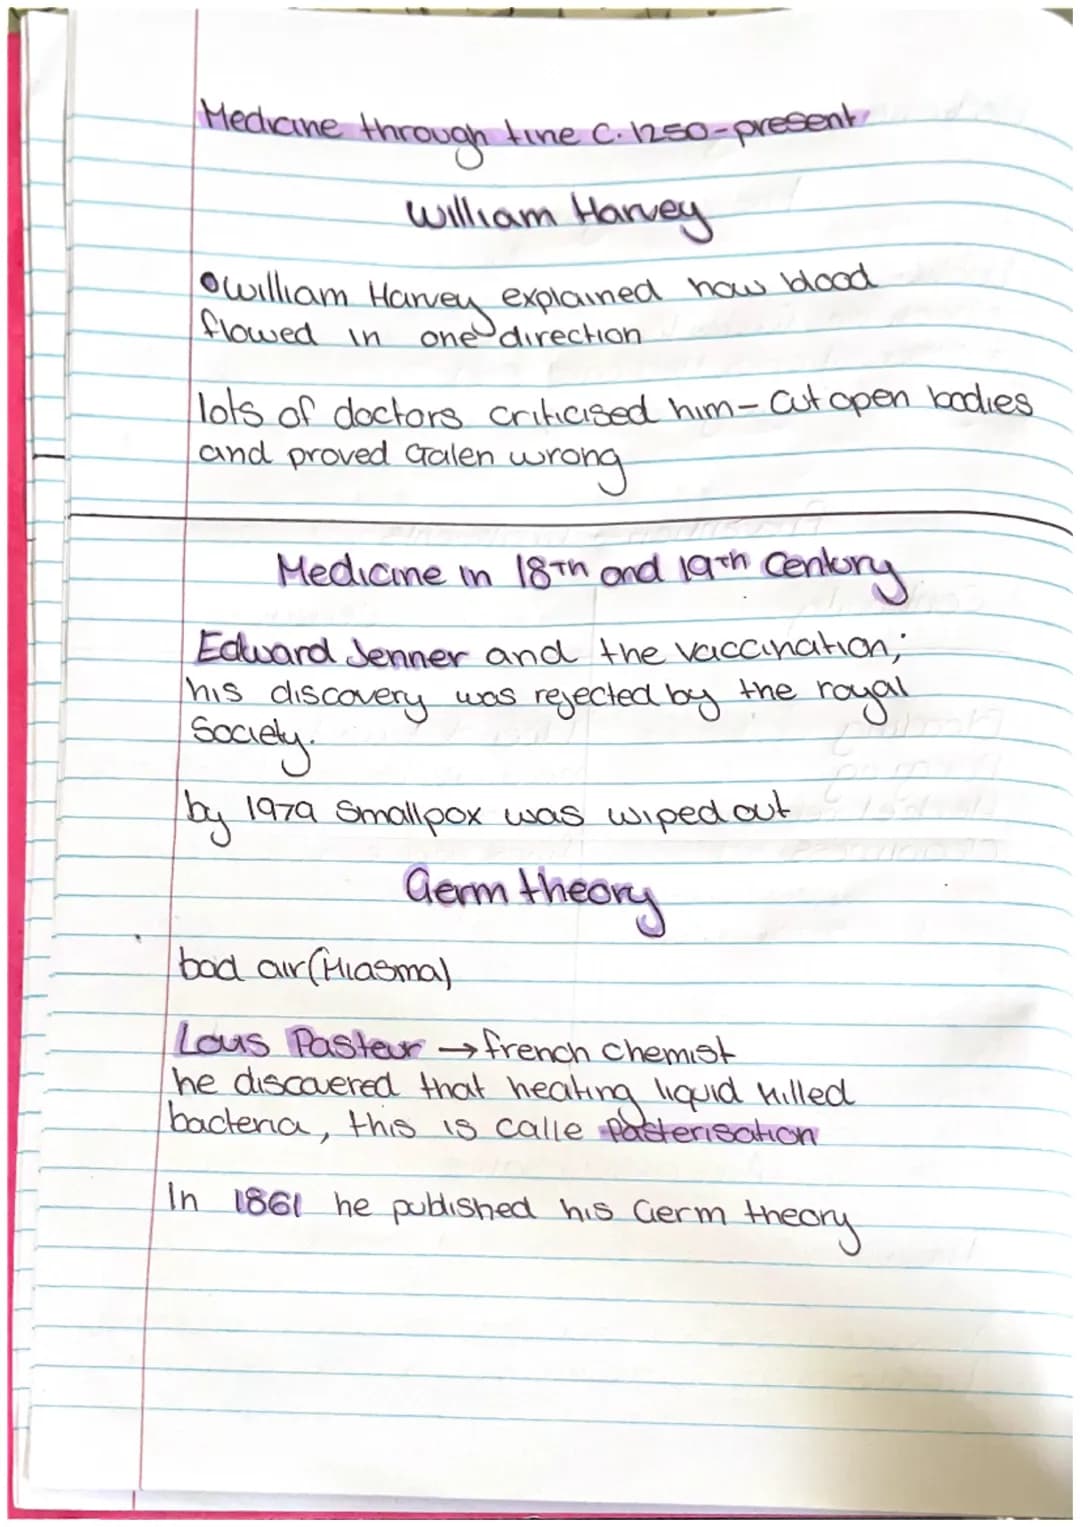 Medicine through time C.1250-present
William Harvey
•William Harvey explained how blood
flowed in one direction
lots of doctors criticised him - cut open bodies
and proved Galen wrong
Medicine in 18Th and 19th Century
Edward Jenner and the vaccination;
his discovery was rejected by the royal
Society.
by 1979 Smallpox was wiped out
Germ theory
bad air (Miasma)
Lous Pasteur → french chemist
he discovered that heating liquid killed
bacteria, this is calle Pasterisation
In 1861 he published his Germ theory